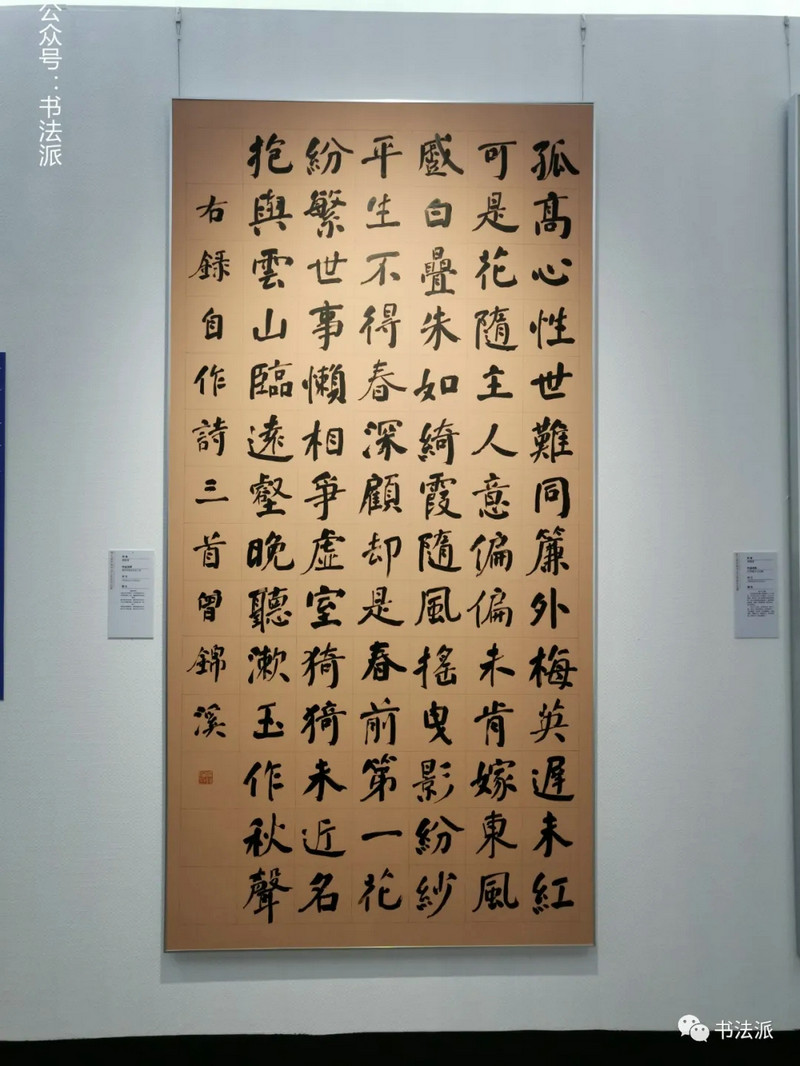 孤髙心性世難同簾外梅英遲未紅
可是花隨主人意偏偏未肯嫁東風
白疊朱如綺霞隨風搖曳影紛紗
平生不得春深顧却是春前第一花
紛繁世事懶相爭虛室猗猗未近名
抱與雲山臨遠壑晚聽漱玉作秋聲
右録自作詩三首曾錦溪
公众号：书法派
书法派